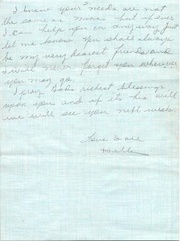 I know your needs are not
the same as mine but if ever
I can help you in any way just
let me know. You shall always
be my very dearest friend and
I will never forget you wherever
you may go.
I pray God's richest blessings
upon you and if its his will
we will see you next week.
Love